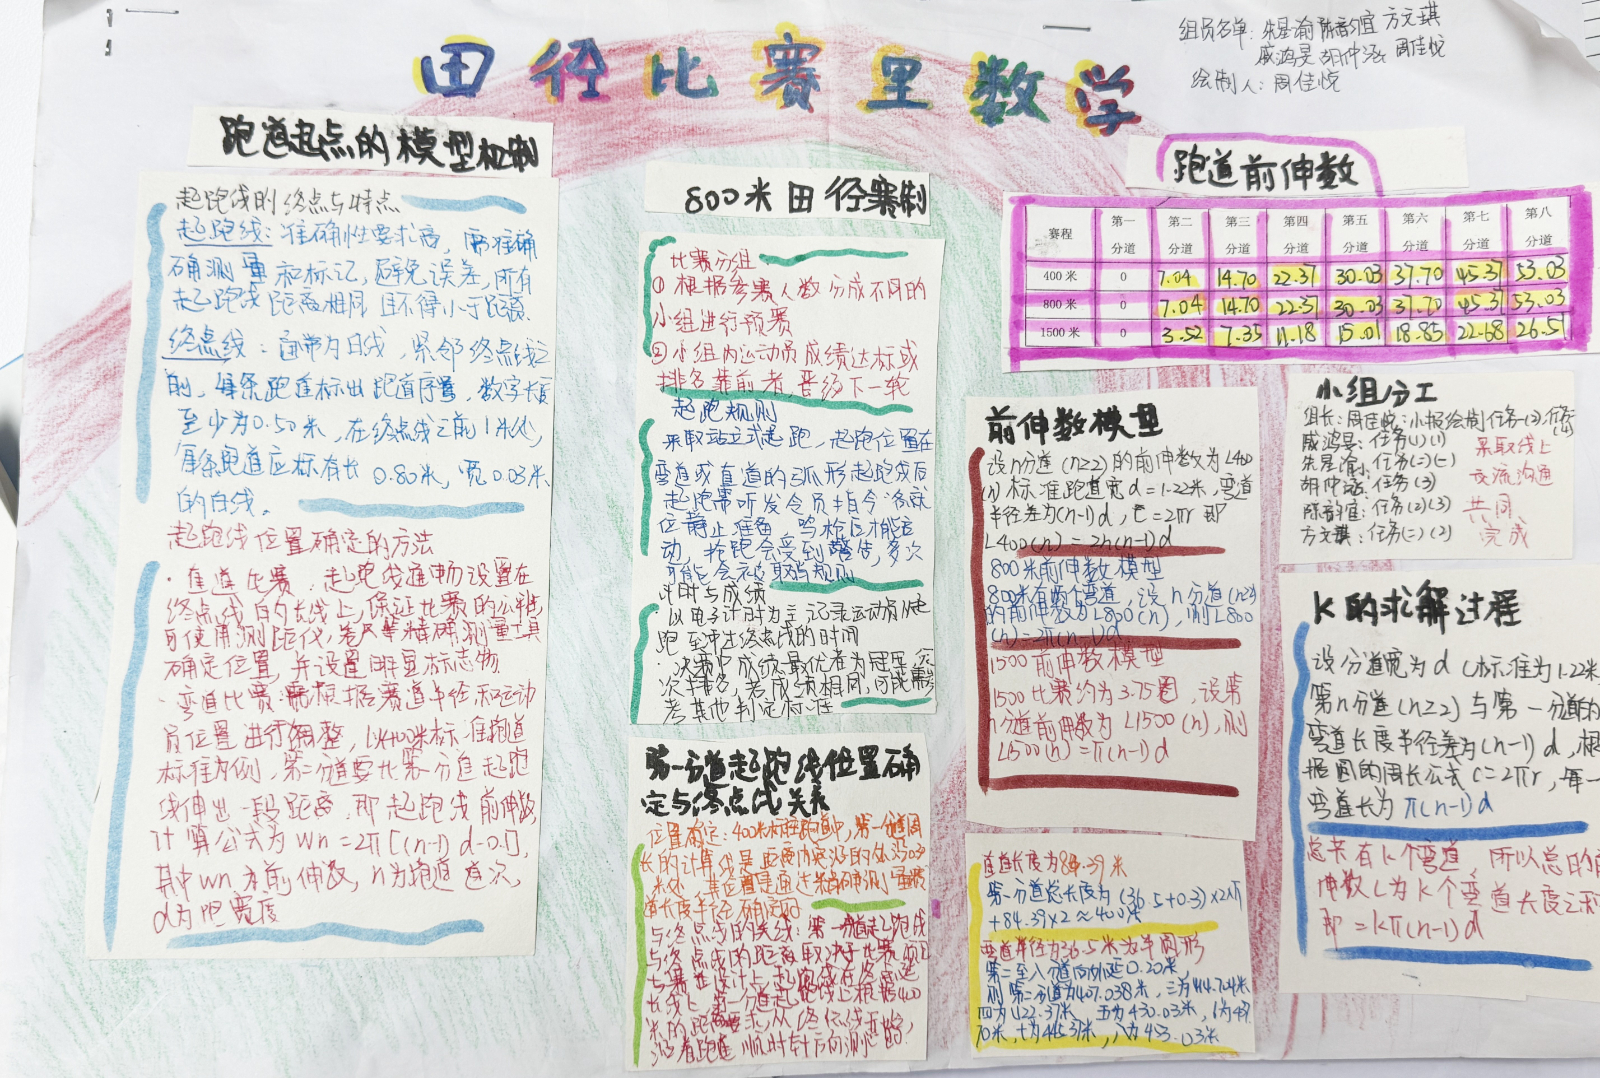 田径比赛里数学
组员名单: 朱星渝 陈韵宜 方文琪
戚鸿昊 胡仲涵 周佳悦
绘制人: 周佳悦
跑道起点的模型机制
起跑线的终点与特点
起跑线: 准确性要求高, 需准确
确测量和标记, 避免误差, 所有
起跑线距离相同且不得小于距离
终点线: 通常为白线, 紧邻终点线之
前, 每条跑道标出跑道序号, 数字长度
至少为0.50米, 在终点线之前1米处,
每条跑道应标有长0.80米, 宽0.03米
的白线。
起跑线位置确定的方法
·直道比赛: 起跑线通常设置在
终点线的长线上, 保证比赛的公平
可使用测距仪, 卷尺等精确测量工具
确定位置, 并设置明显标志物
·弯道比赛: 需根据赛道半径和运动
员位置进行调整, 以400米标准跑道
标准为例, 第二分道要比第一分道起跑
线伸出一段距离, 即起跑线前伸数,
计算公式为 wn=2π[(n-1)d-0.1],
其中wn为前伸数, n为跑道道次,
d为跑宽度
800米田径赛制
比赛分组
①根据参赛人数分成不同的
小组进行预赛
②小组内运动员成绩达标或
排名靠前者, 晋级下一轮
起跑规则
采取站立式起跑, 起跑位置在
弯道或直道的弧形起跑线后
起跑需听发令员指令"各就
位"静止准备, 鸣枪后才能启
动, 抢跑会受到警告, 多次
可能会被取消规则
计时与成绩
·以电子计时为主记录运动员从起
跑到冲过终点线的时间
·决赛中成绩最优者为冠军, 依
次排名, 若成绩相同, 可能需参
考其他判定标准
第一分道起跑线位置确
定与终点线关系
位置确定: 400米标准跑道中, 第一分道周
长的计算线是距离内突沿的外沿0.3
米处, 其位置是通过精确测量
道长度半径确定的
与终点线的关线: 第一分道起跑线
与终点线的距离取决于比赛项目
与赛道设计上, 起跑线在终点延
长线上, 第一分道起跑线上根据400
米的距离要求, 从终点线开始,
沿着跑道顺时针方向测定的.
跑道前伸数
赛程 第一分道 第二分道 第三分道 第四分道 第五分道 第六分道 第七分道 第八分道
400米 0 7.04 14.70 22.37 30.03 37.70 45.37 53.03
800米 0 7.04 14.70 22.37 30.03 37.70 45.37 53.03
1500米 0 3.52 7.35 11.18 15.01 18.85 22.68 26.51
前伸数模型
设n分道(n≥2)的前伸数为L400
(n)标准跑道宽d=1.22米, 弯道
半径差为(n-1)d, c=2πr 即
L400(n)=2π(n-1)d
800米前伸数模型
800米有两个弯道, 设n分道(n≥2)
的前伸数为L800(n), 则L800
(n)=2π(n-1)d
1500前伸数模型
1500比赛约为3.75圈, 设第
n分道前伸数为L1500(n), 则
L1500(n)=π(n-1)d
直道长度为84.39米
第一分道总长度为(36.5+0.3)×2π
+84.39×2≈400米
弯道半径为36.5米为半圆形
第二至八分道向外延0.20米
则第二分道为407.038米, 三为414.704米
四为422.37米 五为430.03米, 六为437.
70米, 七为445.37米, 八为453.03米
小组分工
组长: 周佳悦: 小报绘制 任务(2)
戚鸿昊: 任务(1)(1)
朱星渝: 任务(二)(一)
胡仲涵: 任务(3)
陈韵宜: 任务(2)(3)
方文琪: 任务(二)(2)
采取线上
交流沟通
共同
完成
K的求解过程
设分道宽为d(标准为1.22米
第n分道(n≥2)与第一分道的
弯道长度半径差为(n-1)d, 根
据圆的周长公式c=2πr, 每一
弯道长为π(n-1)d
总共有k个弯道, 所以总的前
伸数L为k个弯道长度之和
即=kπ(n-1)d